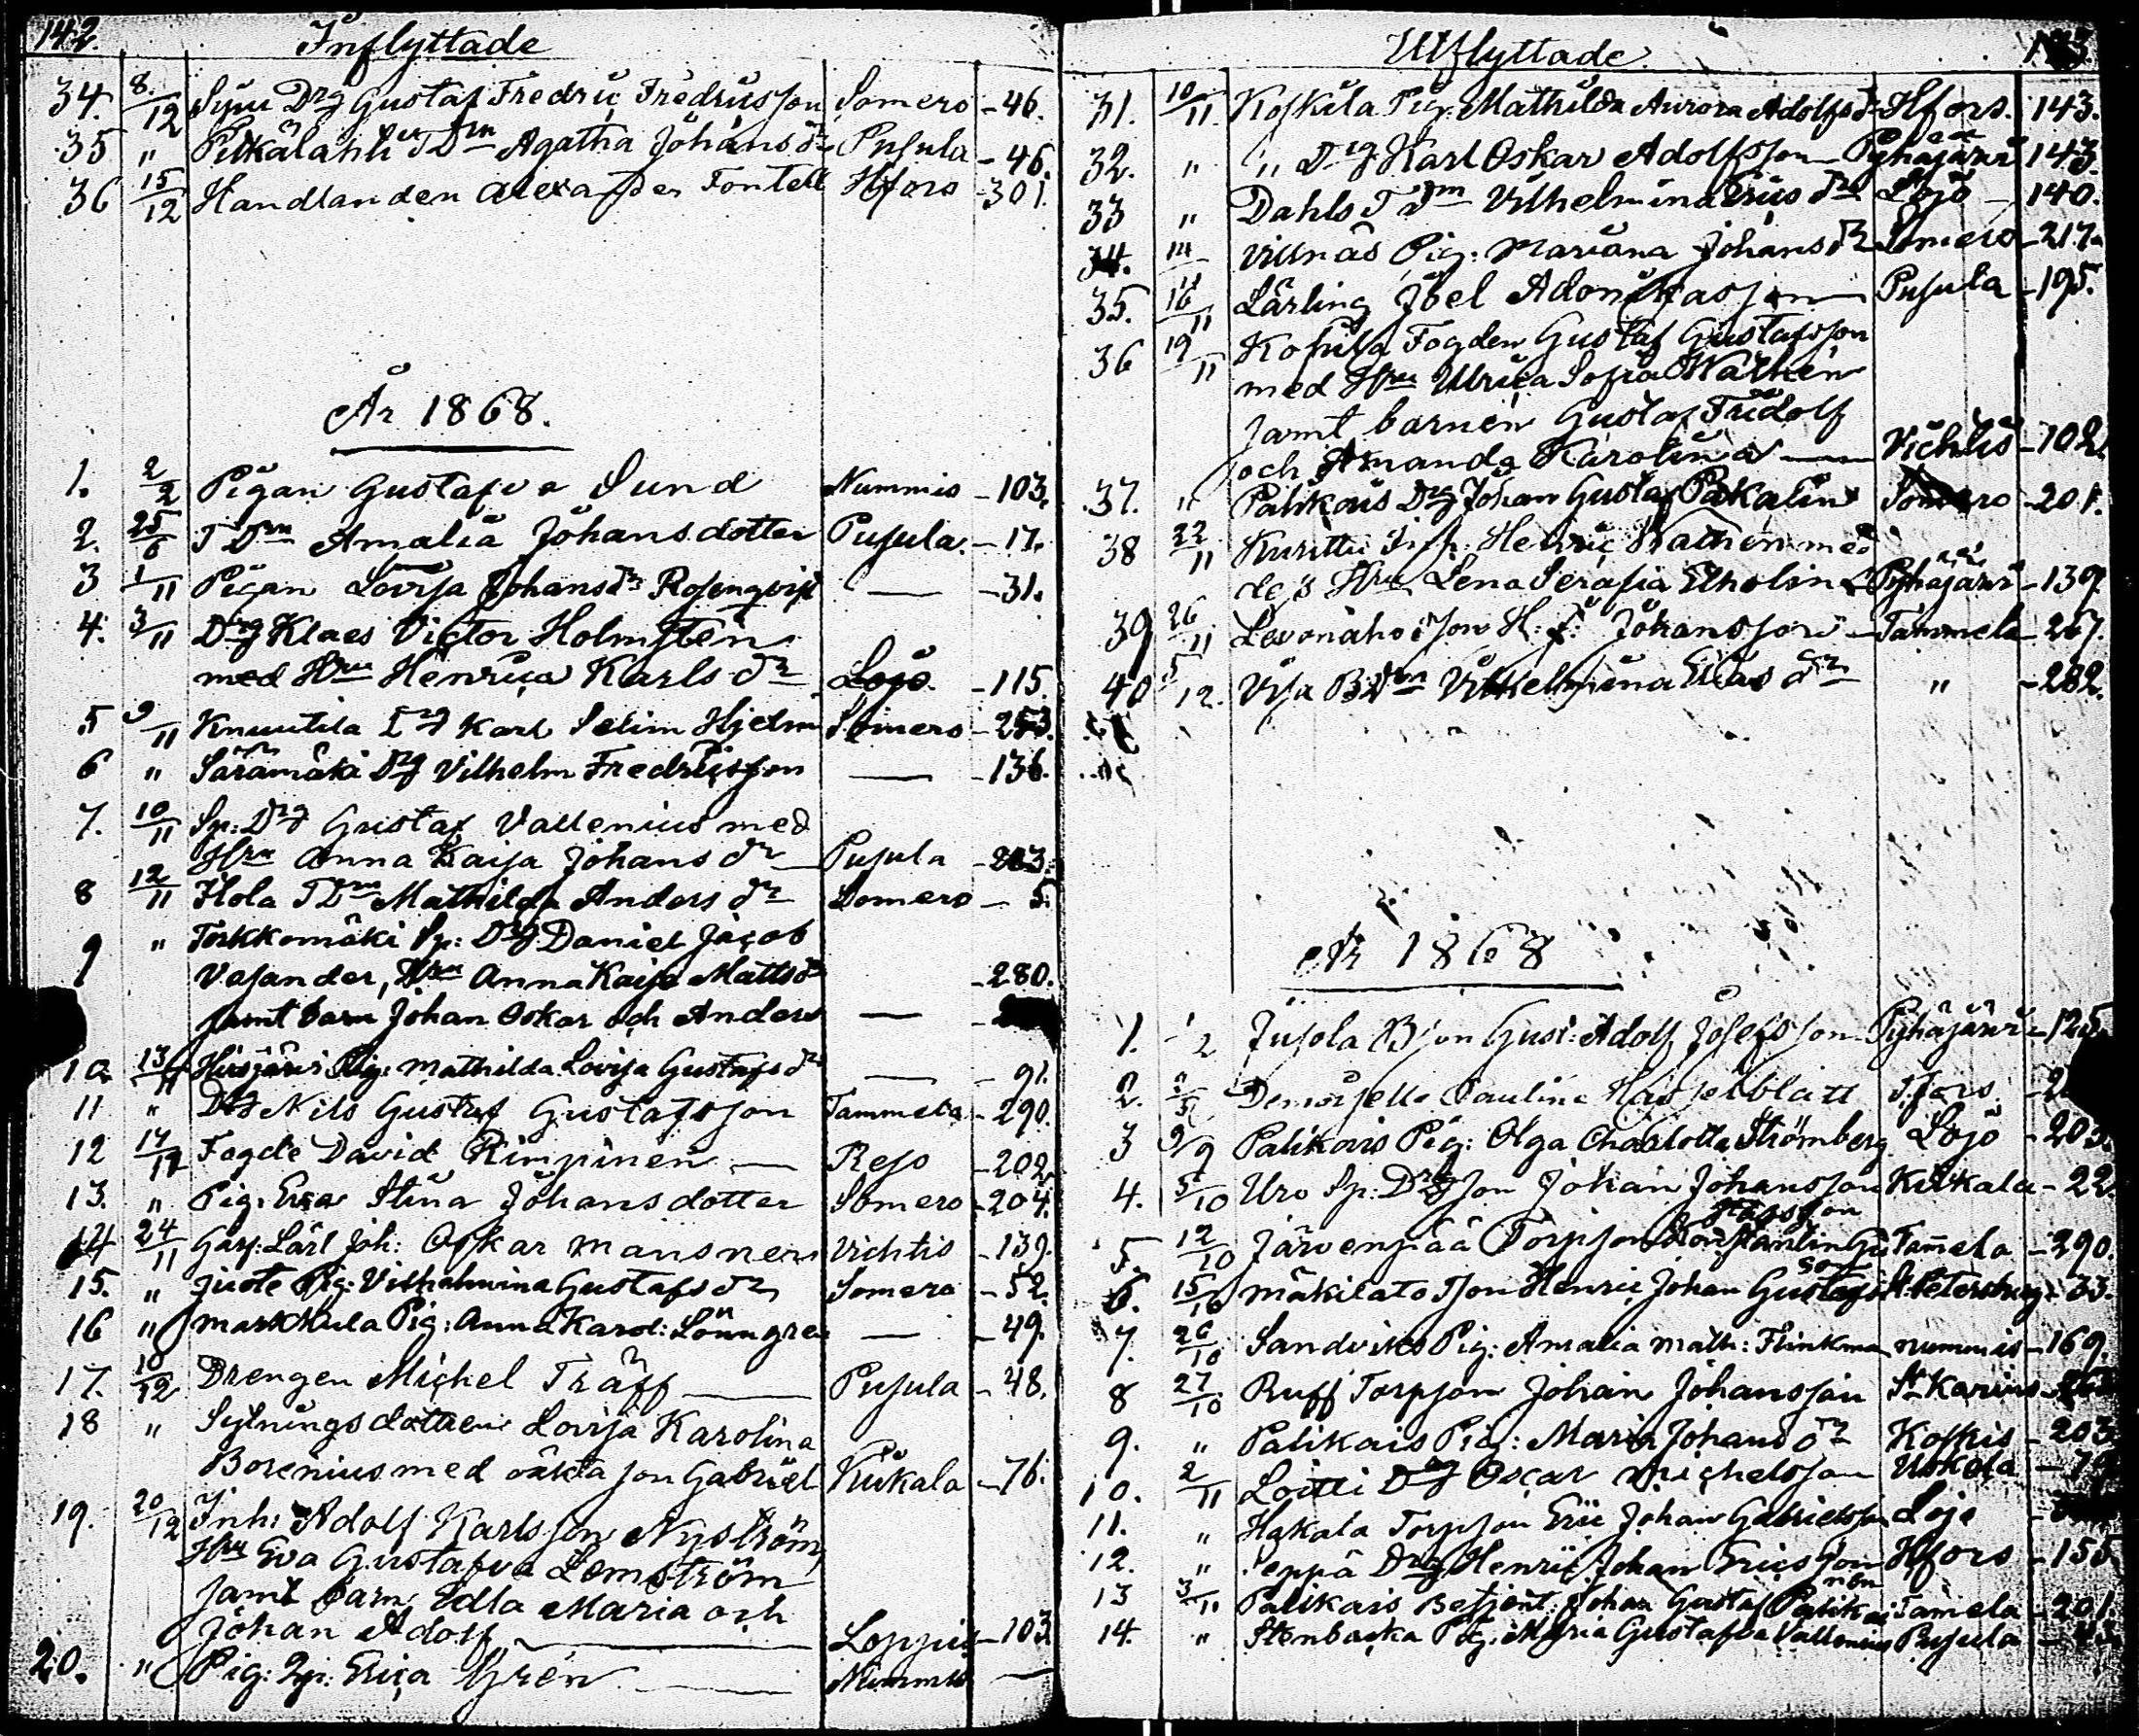 142.
Inflyttade
34. 8/12 Drg Gustaf Fredric Fredricsson Somero - 46.
35 " Pitkälähti TDrn Agatha Johansdr Pusula - 46.
36 15/12 Handlanden Alexander Fontell Hfors - 301.
År 1868.
1. 2/2 Pigan Gustafva Sund Nummis - 103.
2. 25/6 TDrn Amalia Johansdotter Pusula. - 17.
3 1/11 Pigan Lovisa Johansdr Rosenqvist — - 31.
4. 3/11 Drg Klaes Victor Holmsten
med Hru Henrica Karlsdr Lojo. - 115.
5 9/11 Knuutila Drg Karl Selim Hjelm Somero - 253.
6 " Säramäki Drg Vilhelm Fredricsson — - 136.
7. 10/11 Sp: Drg Gustaf Vallenius med
Hru Anna Kaisa Johansdr Pusula - 203.
8 12/11 Hola TDrn Mathilda Andersdr Somero - 5.
9 " Torkkomäki Sp: Drg Daniel Jacob
Vasander, Hru Anna Kaisa Mattsdr - 280.
samt barn Johan Oskar och Anders —
10 13/11 Hirsjärvi Pig: Mathilda Lovisa Gustafsdr — - 91.
11 " Drg Nils Gustaf Gustafsson Tammela - 290.
12 17/11 Fogde David Rimpinen — Reso - 202.
13. " Pig: Eva Stina Johansdotter Somero - 204.
14 24/11 Garf: Lärl Joh: Oskar Mansner Vichtis - 139.
15. " Pig: Vilhelmina Gustafsdr Somero - 52.
16 " Markkula Pig: Anna Karol: Lönngren — - 49.
17. 10/12 Drengen Michel Träff — Pusula - 48.
18 " Sytningsdottern Lovisa Karolina
Borenius med oäkta son Gabriel Kiikala - 76.
19. 20/12 Inh: Adolf Karlsson Nyström,
Hru Eva Gustafva Lemström
samt barn Edla Maria och
Johan Adolf — Loppis - 103
20. " Pig: Erica Grén — Nummis —
Utflyttade
31. 10/11. Koskela Pig: Mathilda Aurora Adolfsdr Hfors. 143.
32. " " Drg Karl Oskar Adolfsson - Pyhäjärvi 143.
33 " Dahls TDrn Vilhelmina Ericsdr Lojo - 140.
34. 14/11 Villnäs Pig: Mariana Johansdr Somero - 217.
35. 16/11 Lärling Joel Adonikasson Pusula - 195.
36 19/11 Fogden Gustaf Gustafsson
med Hru Ulrica Sofia Wathén
samt barnen Gustaf Fridolf
och Amanda Karolina — Vichtis - 102.
37. " Palikais Drg Johan Gustaf Somero - 201.
38 22/11 Henric Wathén med
dess Hru Lena Serafia Ekholm Pyhäjärvi - 139.
39 26/11 Levonaho Son H: J: Johansson - Tammela - 267.
40 5/12. BDrn Vilhelmina Eliasdr " - 282.
År 1868
1. /2 Jusola BSon Gust: Adolf Josefsson Pyhäjärvi - 125.
2. Demoiselle Paulina Hasselblatt
3 9/9 Palikais Pig: Olga Charlotta Strömberg Lojo - 203.
4. 5/10 Uro Sp: Drg Son Johan Johansson Kiikala - 22.
5. 12/10 Järvenpää Torpson Konstantin Gustafsson Tamela - 290.
6. 15/10 Mäkilato TSon Henric Johan Gustafsson St. Petersburg - 33.
7. 26/10 Sandviks Pig: Amalia Math: Flinkman Nummis - 169.
8 27/10 Ruff Torpson Johan Johansson St Karins
9. " Palikais Pig: Maria Johansdr Koskis - 203
10. 2/11 Loitti Drg Oscar Michelsson Uskela
11. " Hakala Torpson Eric Johan Gabrielsson Lojo
12. " Seppä Drg Henric Johan Ericsson Hfors - 155.
13 3/11 Palikais Betjent: Johan Gustaf Palikainen Tamela - 201.
14. " Stenbacka Pig: Maria Gustafva Vallenius Pusula